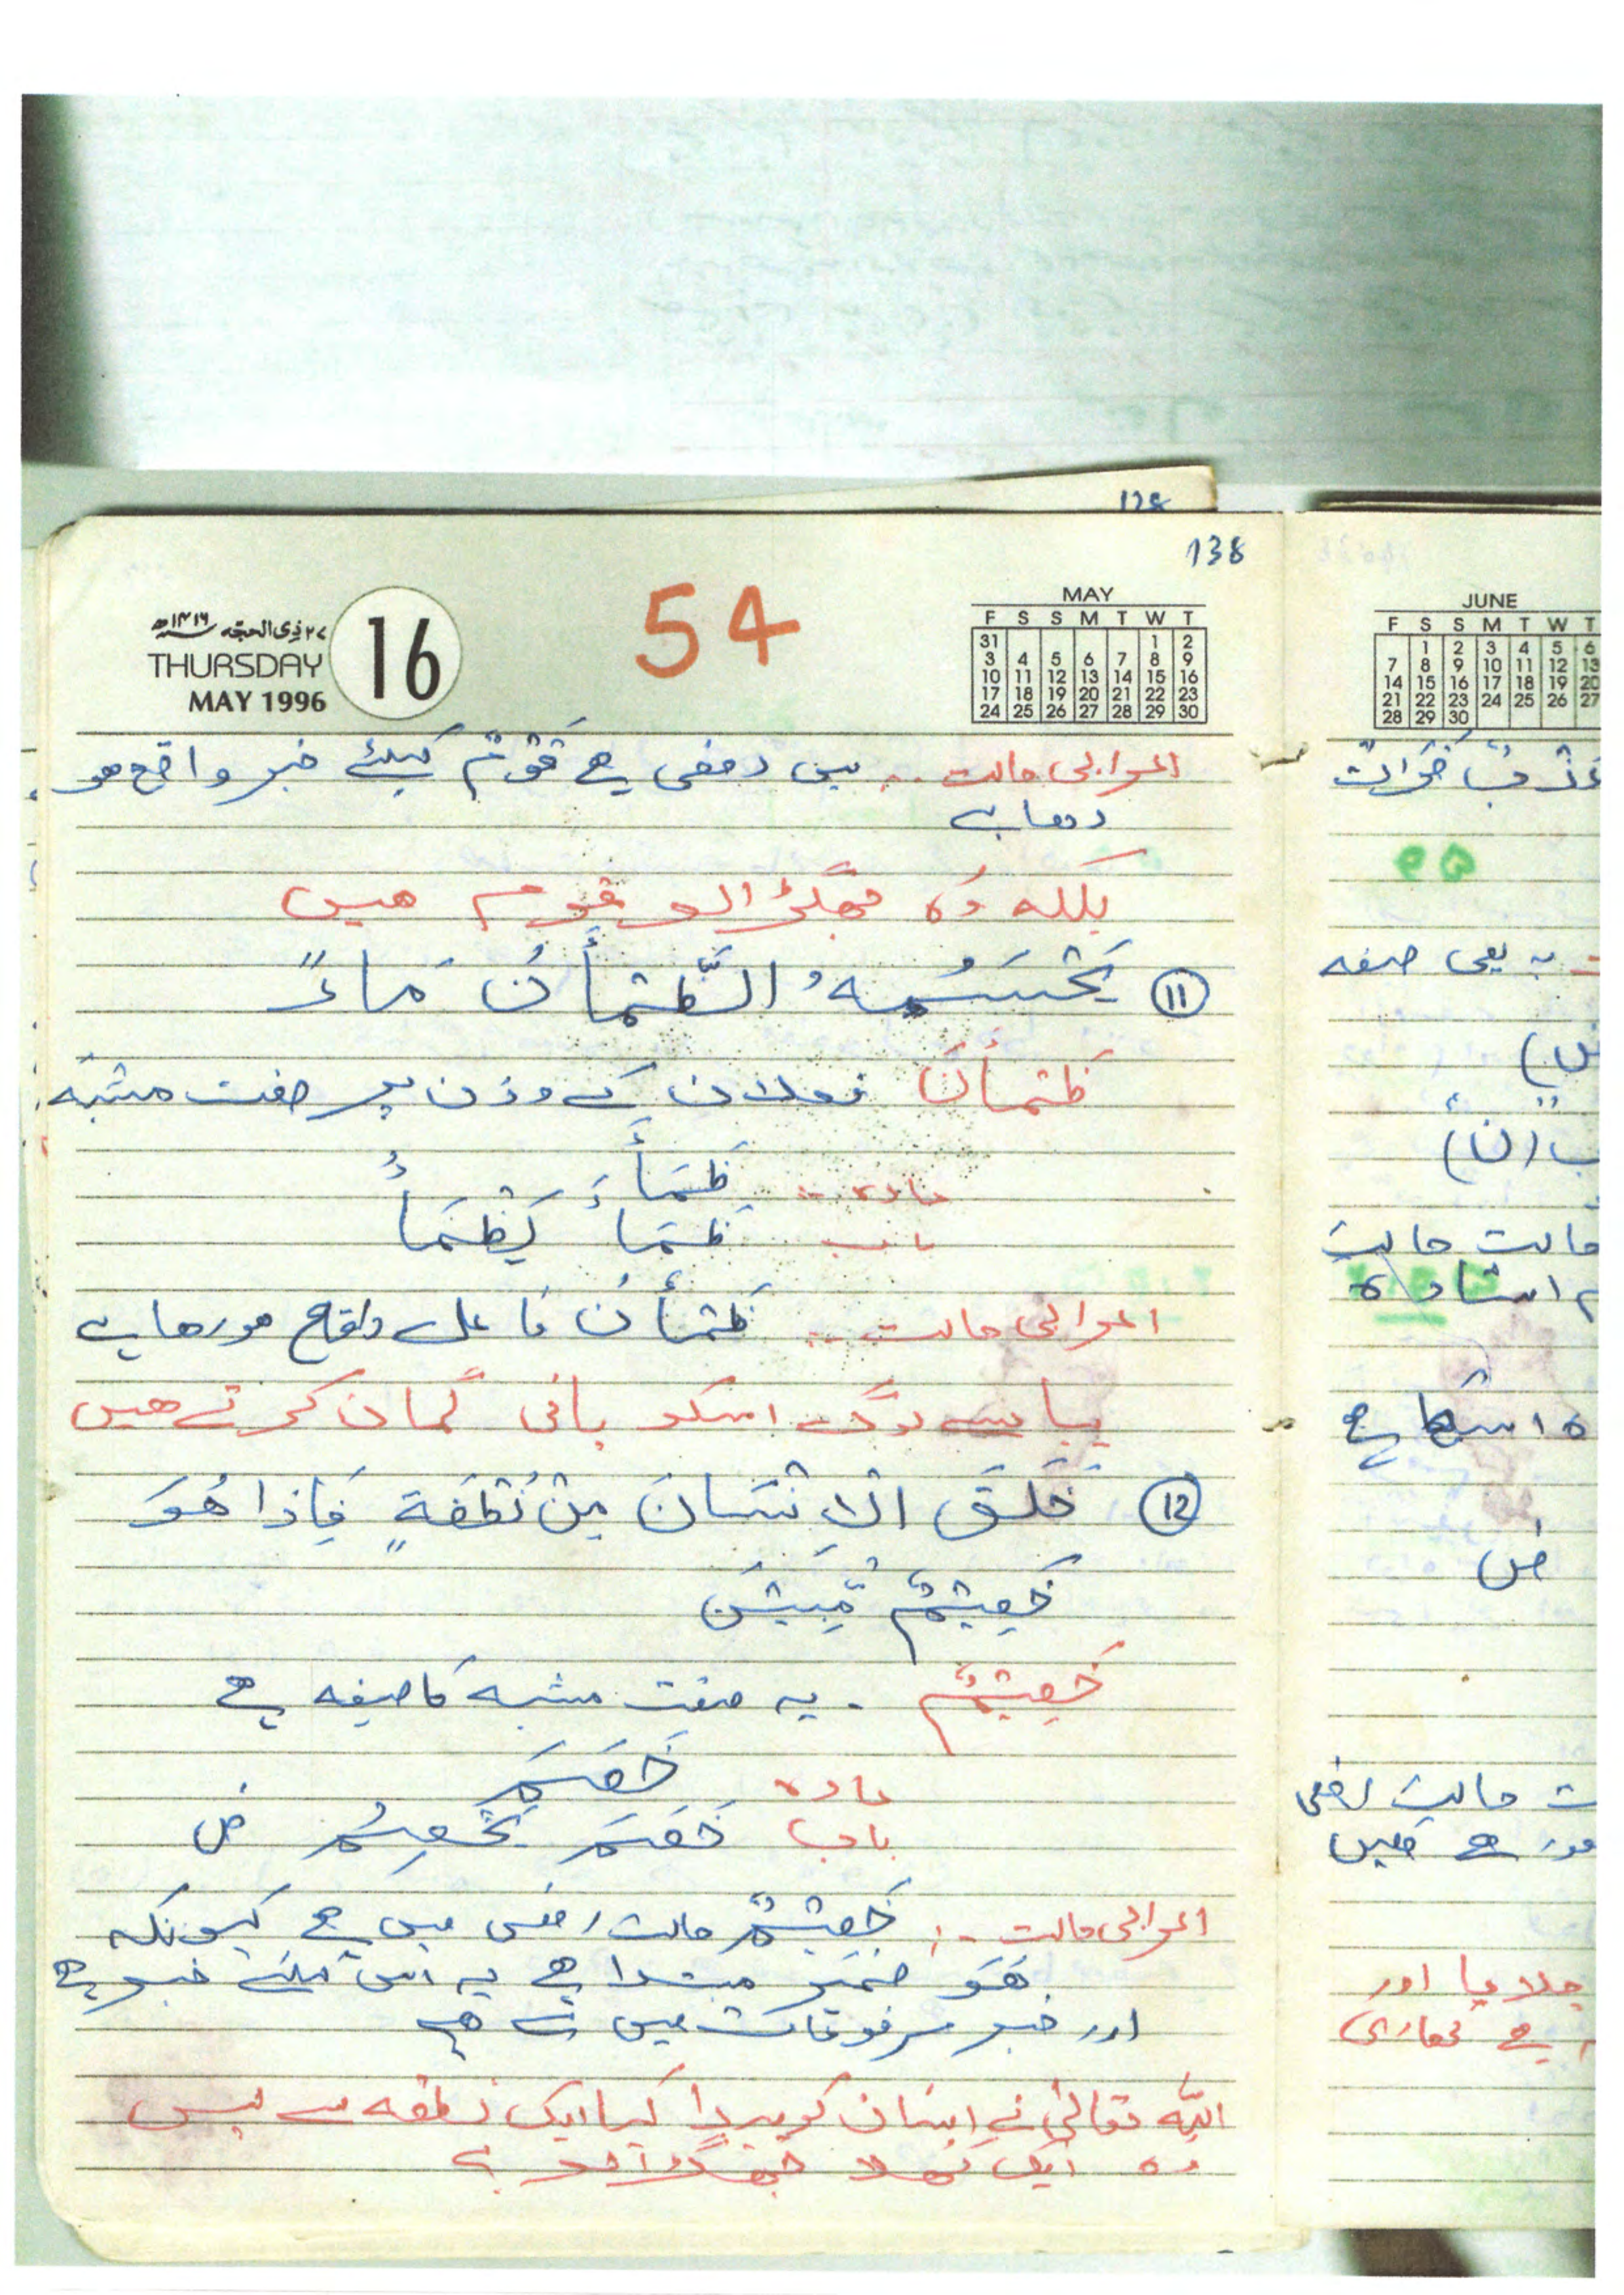 128
138
54
۲۷ ذی الحجه ۱۴۱۶ھ
THURSDAY 16
MAY 1996
MAY
F S S M T W T
31 1 2
3 4 5 6 7 8 9
10 11 12 13 14 15 16
17 18 19 20 21 22 23
24 25 26 27 28 29 30
اعرابی حالت .. میں رفعی ہے قَوْمٌ کیلئے خبر واقع ہو
رہا ہے
بلکہ وہ جھگڑالو قوم ہیں
⑪ يَحْسَبُهُ الظَّمْأَنُ مَاءً
ظَمْأَنَ فعلان کے وزن پر صفت مشبہ
مادہ .. ظَمَأَ
باب ظَمَاءَ يَظْمَأُ
اعرابی حالت .. ظَمْأَنُ فاعل واقع ہورہا ہے
پیاسے لوگ اسکو پانی گمان کرتے ہیں
⑫ خَلَقَ الْاِنْسَانَ مِنْ نُطْفَةٍ فَاِذَا هُوَ
خَصِيْمٌ مُّبِيْنَ
خَصِيْمٌ . یہ صفت مشبہ کا صیغہ ہے
مادہ خَصَمَ
باب خَصَمَ يَخْصِمُ ض
اعرابی حالت .. خَصِيْمٌ حالت رفعی میں ہے کیونکہ
هُوَ ضمیر مبتدا ہے یہ اس کیلئے خبر ہے
اور خبر مرفوعات میں سے ہے
اللہ تعالٰی نے انسان کو پیدا کیا ایک نطفہ سے پس
وہ ایک کھلا جھگڑالو ہے
JUNE
F S S M T W T
1 2 3 4 5 6
7 8 9 10 11 12 13
14 15 16 17 18 19 20
21 22 23 24 25 26 27
28 29 30
یہ بھی صیغہ
حالت حالت
ض
حالت رفعی
ہے میں
جلایا اور